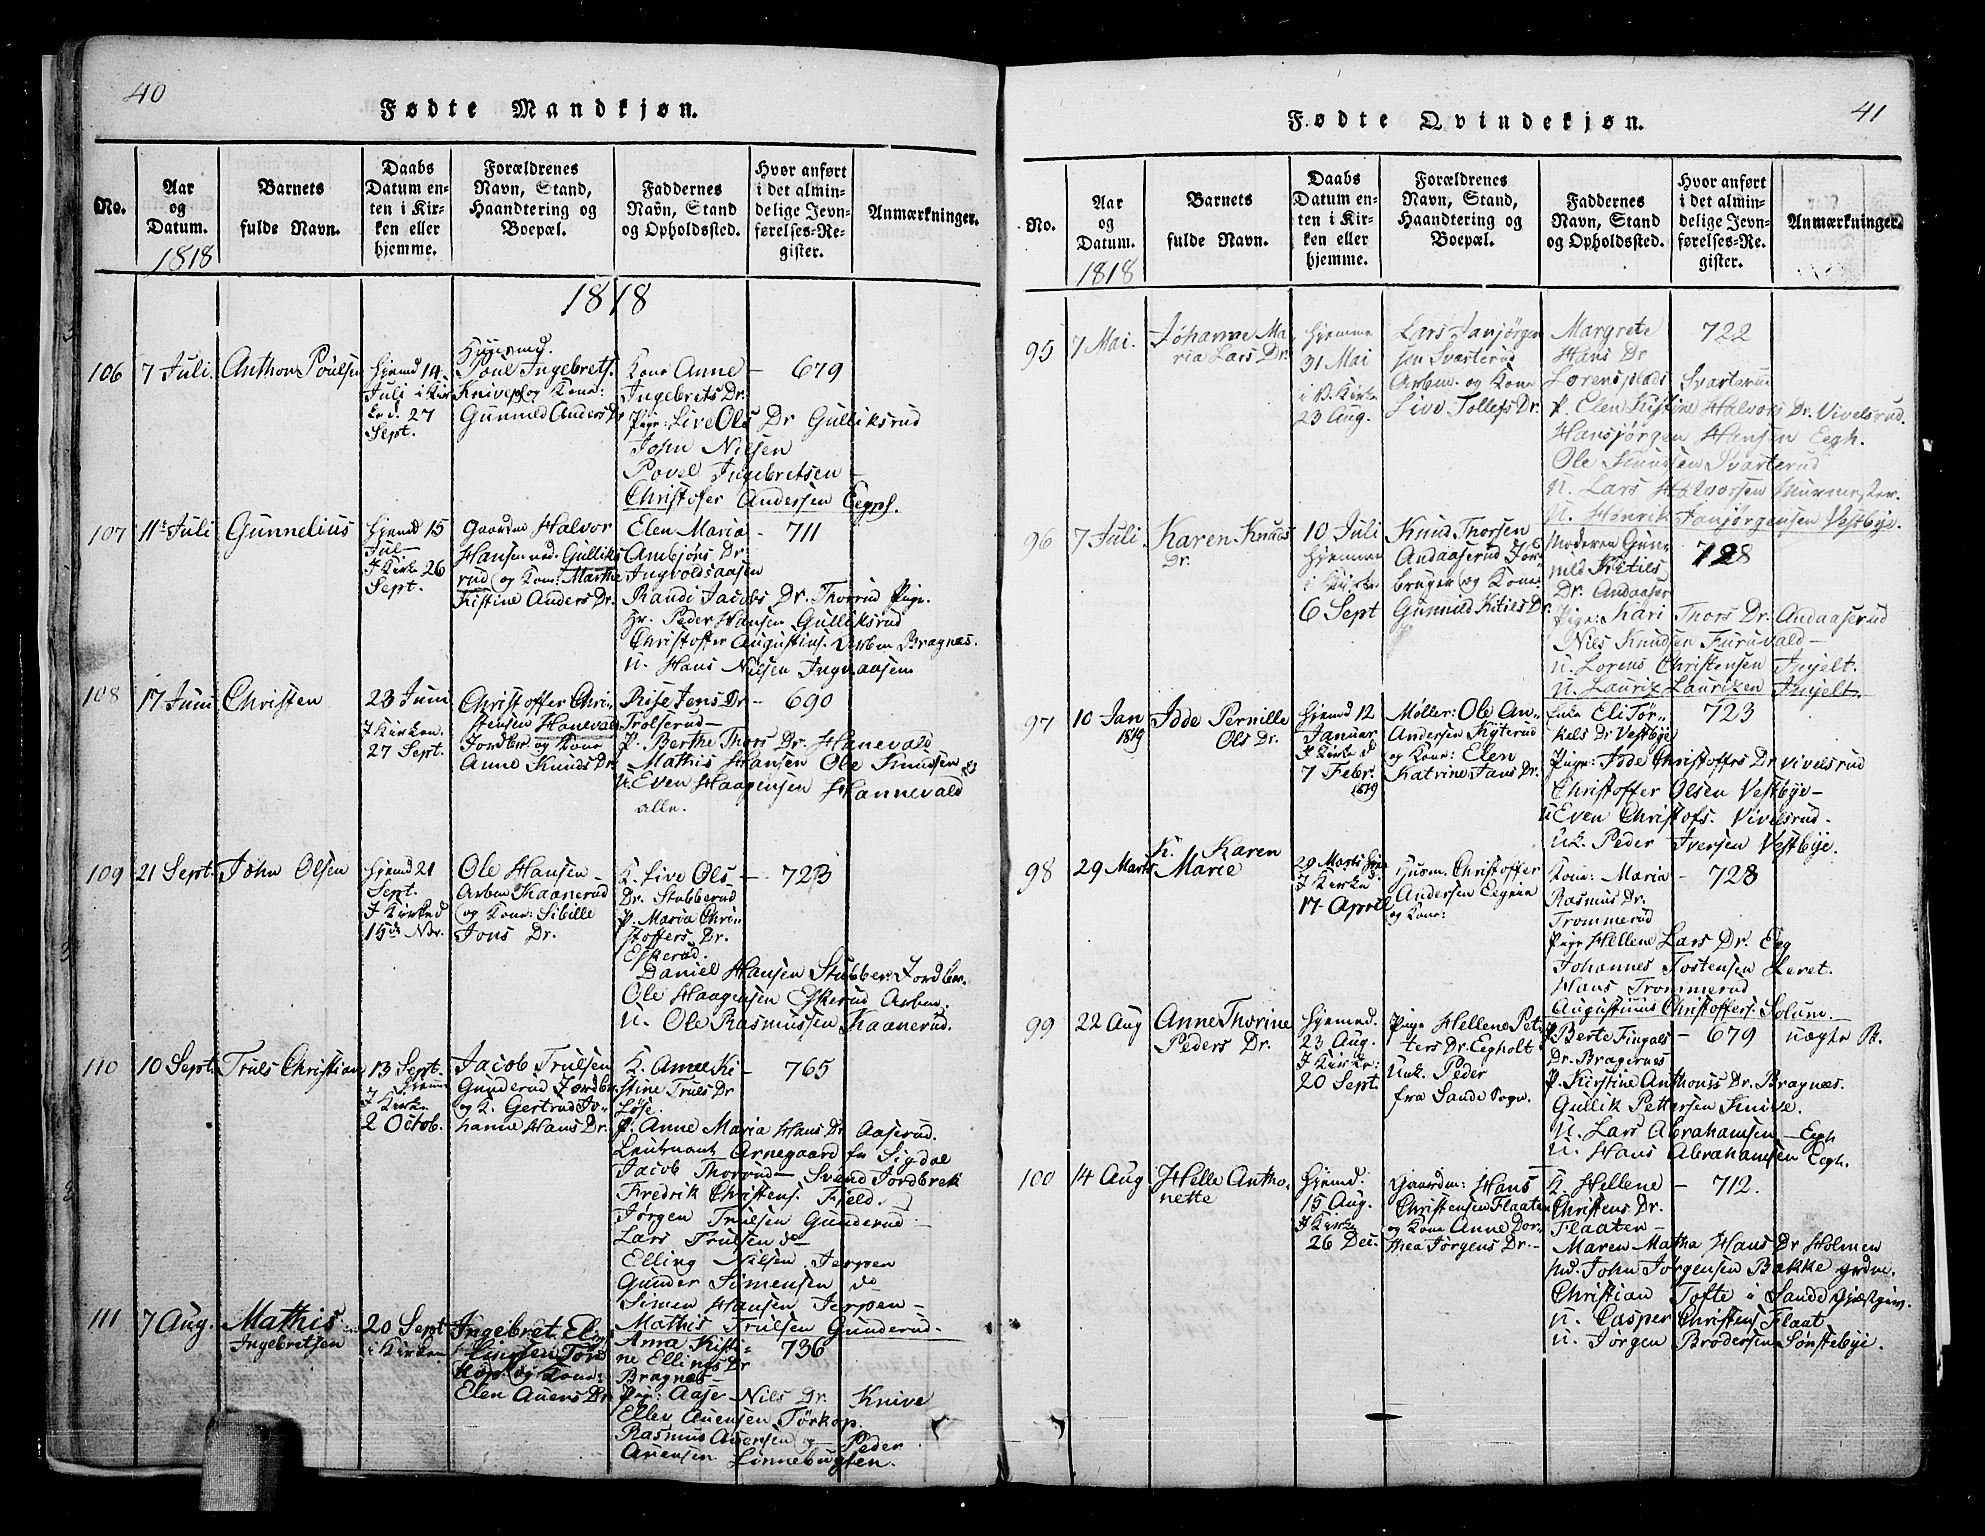 40
Fødte Mandkjøn.
No.
Aar og Datum.
1818
Barnets fulde Navn.
Daabs Datum enten i Kirken eller hjemme.
Forældrenes Navn, Stand, Haandtering og Boepæl.
Faddernes Navn, Stand og Opholdssted.
Hvor anført i det almindelige Jevnførelses-Register.
Anmærkninger.
1818
106
7 Juli
Anthon Poulsen
Hjemd 14
Juli i Kir
ke d. 27
Sept.
Huusmd.
Poul Ingebrets.
Knive og Kone:
Gunnild Anders Dr
Kone Anne
Ingebrets Dr.
Pige: Live Ols Dr Gulliksrud
John Nilsen
Povel Ingebretsen
Christofer Andersen
679
107
11te Juli
Gunnelius
Hjemd 15
Jul
I Kirke 26
Sept.
Gaardm Halvor
Hansen ned. Gulliks
rud og Kone: Marthe
Kistine Anders Dr.
Elen Maria
Ambjørs Dr.
Ingvoldsaasen
Randi Jacobs Dr. Thorrud Pige.
Hr. Peder Hansen Gulliksrud
Christoffer Augustins. Arben Bragnæs.
U. Hans Nilsen Ingvaasen
711
108
17 Juni
Christen
23 Juni
I Kirken.
27 Sept.
Christoffer Chri-
stensen Hanevald
Jordbr. og Kone
Anne Knuds Dr.
Rise Jens Dr
Trolserud
P. Berthe Thors Dr. Hanevald
Mathis Hansen Ole Knudsen &
U Even Haagensen Hannevald
alle.
690
109
21 Sept.
John Olsen
Hjemd 21
Sept.
I Kirke d
15de Nov.
Ole Hansen
Arben Kaanerud
og Kone: Sibille
Jons Dr.
K. Live Ols
Dr. Stubberud
P. Maria Chri-
stoffers Dr.
Eskerud.
Daniel Hansen Stubber. Jordbr.
Ole Haagensen Eskerud Arben.
U. Ole Rasmussen Kaanerud.
723
110
10 Sept.
Truls Christian
13 Sept.
Hjemme
I Kirke
2 Octob.
Jacob Trulsen
Gunderud Jordbr
og K. Gertrud Jo-
hanne Hans Dr.
K. Anne Ki-
stine Truls Dr
Løse.
P. Anne Maria Hans Dr Aaserud.
Lieutnant Arnegaard fr Sigdal
Jacob Thorrud Svend Jordbrek
Fredrik Christens. Fjeld.
Jørgen Trulsen Gunderud
Lars Trulsen do
Elling Nilsen Jerpen
Gunder Simensen do
Simen Hansen Jerpen
Mathis Trulsen Gunderud.
765
111
7 Aug.
Mathis
Ingebretsen
20 Sept
i Kirken
Ingebret
og Kone:
Elen Auens Dr
Anna Kisti-
ne Ellings Dr
Bragnes
Pige: Aase Nils Dr. Knive
Ellev Auensen Tørkop.
Rasmus Auensen og Peder
Auensen Linnebugten.
736
41
Fødte Qvindekjøn.
No.
Aar og Datum.
1818
Barnets fulde Navn.
Daabs Datum enten i Kirken eller hjemme.
Forældrenes Navn, Stand, Haandtering og Boepæl.
Faddernes Navn, Stand og Opholdssted.
Hvor anført i det almindelige Jevnførelses-Register.
Anmærkninger.
95
7 Mai.
Johanne Ma
ria Lars Dr.
Hjemme
31 Mai
i Kirke
23 Aug.
Lars Janjørgen
sen Svarterud
Arben. og Kone
Live Tollefs Dr.
Margrete
Hans Dr
Lorensplads Svarterud
P. Elen Kistine Halvors Dr. Vivelsrud.
Hansjørgen Hansen Eegh.
Ole Knudsen Svarterud
U. Lars Halvorsen Murmester.
U. Henrik Janjørgensen Vestbye.
722
96
7 Juli
Karen Knuds
Dr.
10 Juli
hjemme
i Kirke
6 Sept
Knud Thorsen
Andaaserud Jor
bruger og Kone
Gunnild Kitils Dr.
Moderen Gun-
nild Kitils
Dr. Andaaser
Pige: Kari Thors Dr. Andaaserud
Nils Knudsen Furuvald
U. Lorens Christensen Injelt.
U. Lauriz Laurizen Injelt.
728
97
10 Jan
1819
Idde Pernille
Ols Dr.
Hjemd 12
Januar
I Kirke d
7 Febr.
1819
Møller: Ole An-
dersen Kyterud
og Kone: Elen
Katrine Jans Dr.
Enke Eli Tør-
kels Dr Vestbye
Pige: Idde Christoffers Dr Vivelsrud
Christoffer Olsen Vestbye
U Even Christofs. Vivelsrud.
Uk. Peder Iversen Vestbye.
723
98
29 Marts
K. Karen
Marie
29 Marts Hje
I Kirke
17 April
Huusm. Christoffer
Andersen Eegeie
og Kone:
Kone: Maria
Rasmus Dr.
Trommerud
Pige Hellene Lars Dr. Eeg
Johannes Tostensen Heret.
Hans Trommerud
Augustinus Christoffers. Solum
728
99
22 Aug
Anne Thorine
Peders Dr.
Hjemmed.
23 Aug.
I Kirke:
20 Sept.
Pige Hellene Pet-
ters Dr. Eegholt
Unk. Peder
fra Sande Sogn.
P. Berte Fingals
Dr. Bragernes
P. Kirstine Anthons Dr. Bragnæs.
Gullik Pettersen Knive.
U. Lars Abrahamsen Eegh
U. Hans Abrahamsen Eegh.
679
uægte B.
100
14 Aug
Helle Antho-
nette
Hjemd.
15 Aug.
I Kirke
26 Dec.
Gaardm: Hans
Christensen Flaaten
og Kone Anne Dor-
thea Jørgens Dr.
K. Hellene
Christens Dr.
Flaaten
Maren Matha Hans Dr Holmen
John Jørgensen Bakke
Christian Tofte i Sande Gjæstgiv.
U. Casper Christens Flaat
U. Jørgen Brodersen Sønstebye.
712.